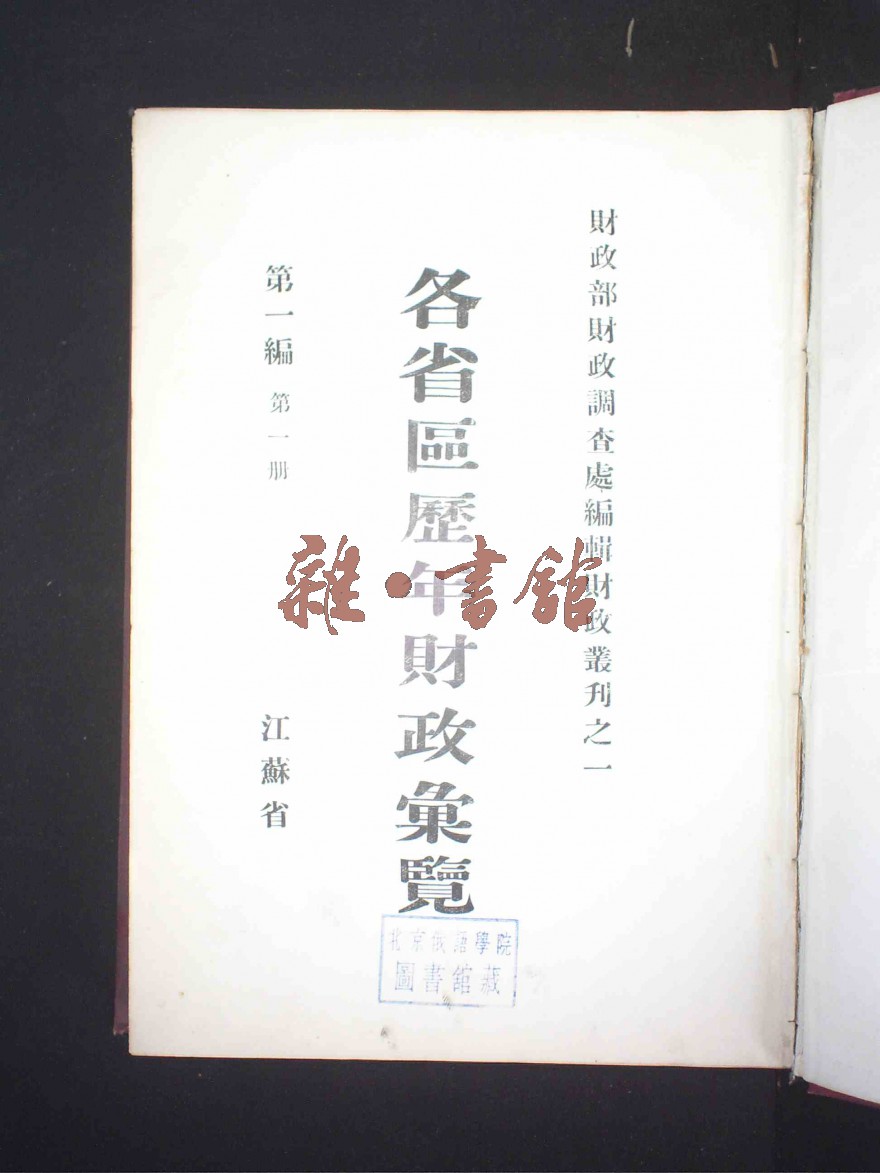 財政部財政調查處編輯財政叢刊之一
各省區歷年財政彙覽
第一編 第一册
江蘇省
雜·書館
北京俄語學院
圖書館藏